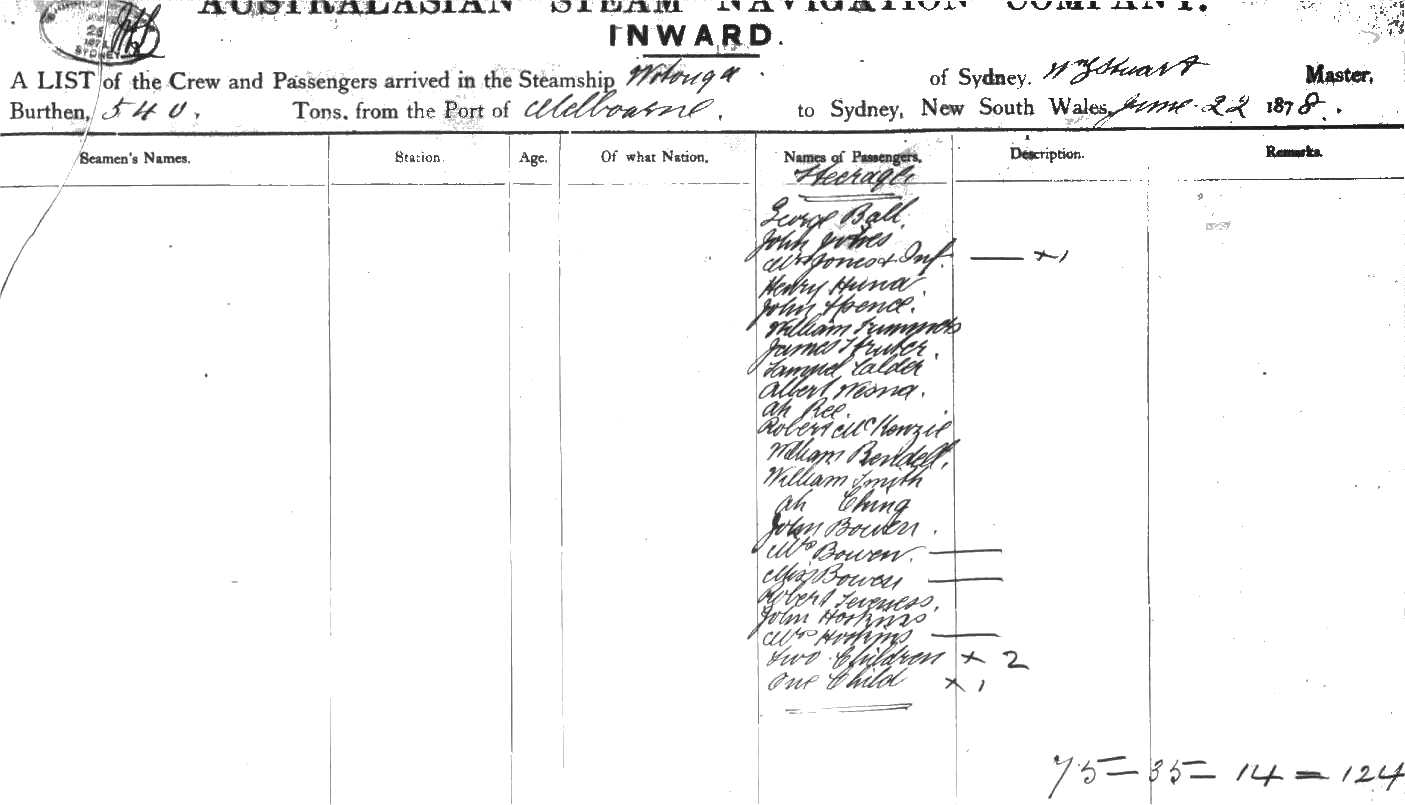 AUSTRALASIAN STEAM NAVIGATION COMPANY.
INWARD.
SYDNEY
A LIST of the Crew and Passengers arrived in the Steamship Wotonga of Sydney. Wm Stuart Master,
Burthen, 540, Tons, from the Port of Melbourne, to Sydney, New South Wales, June 22 1878.
Seamen's Names. Station. Age. Of what Nation. Names of Passengers. Description. Remarks.
Steerage
George Ball.
John Jones
Mrs Jones & Inf. — x 1
Henry Hund.
John Spence.
William
James
Samuel Calder
Albert
Ah Kee.
Robert McKenzie
William Bendell.
William Smith
Ah Ching
John Bowen.
Mrs Bowen. —
Miss Bowen —
Robert
John Hoskins
Mrs Hoskins —
two Children x 2
One Child x 1
75 — 35 — 14 = 124